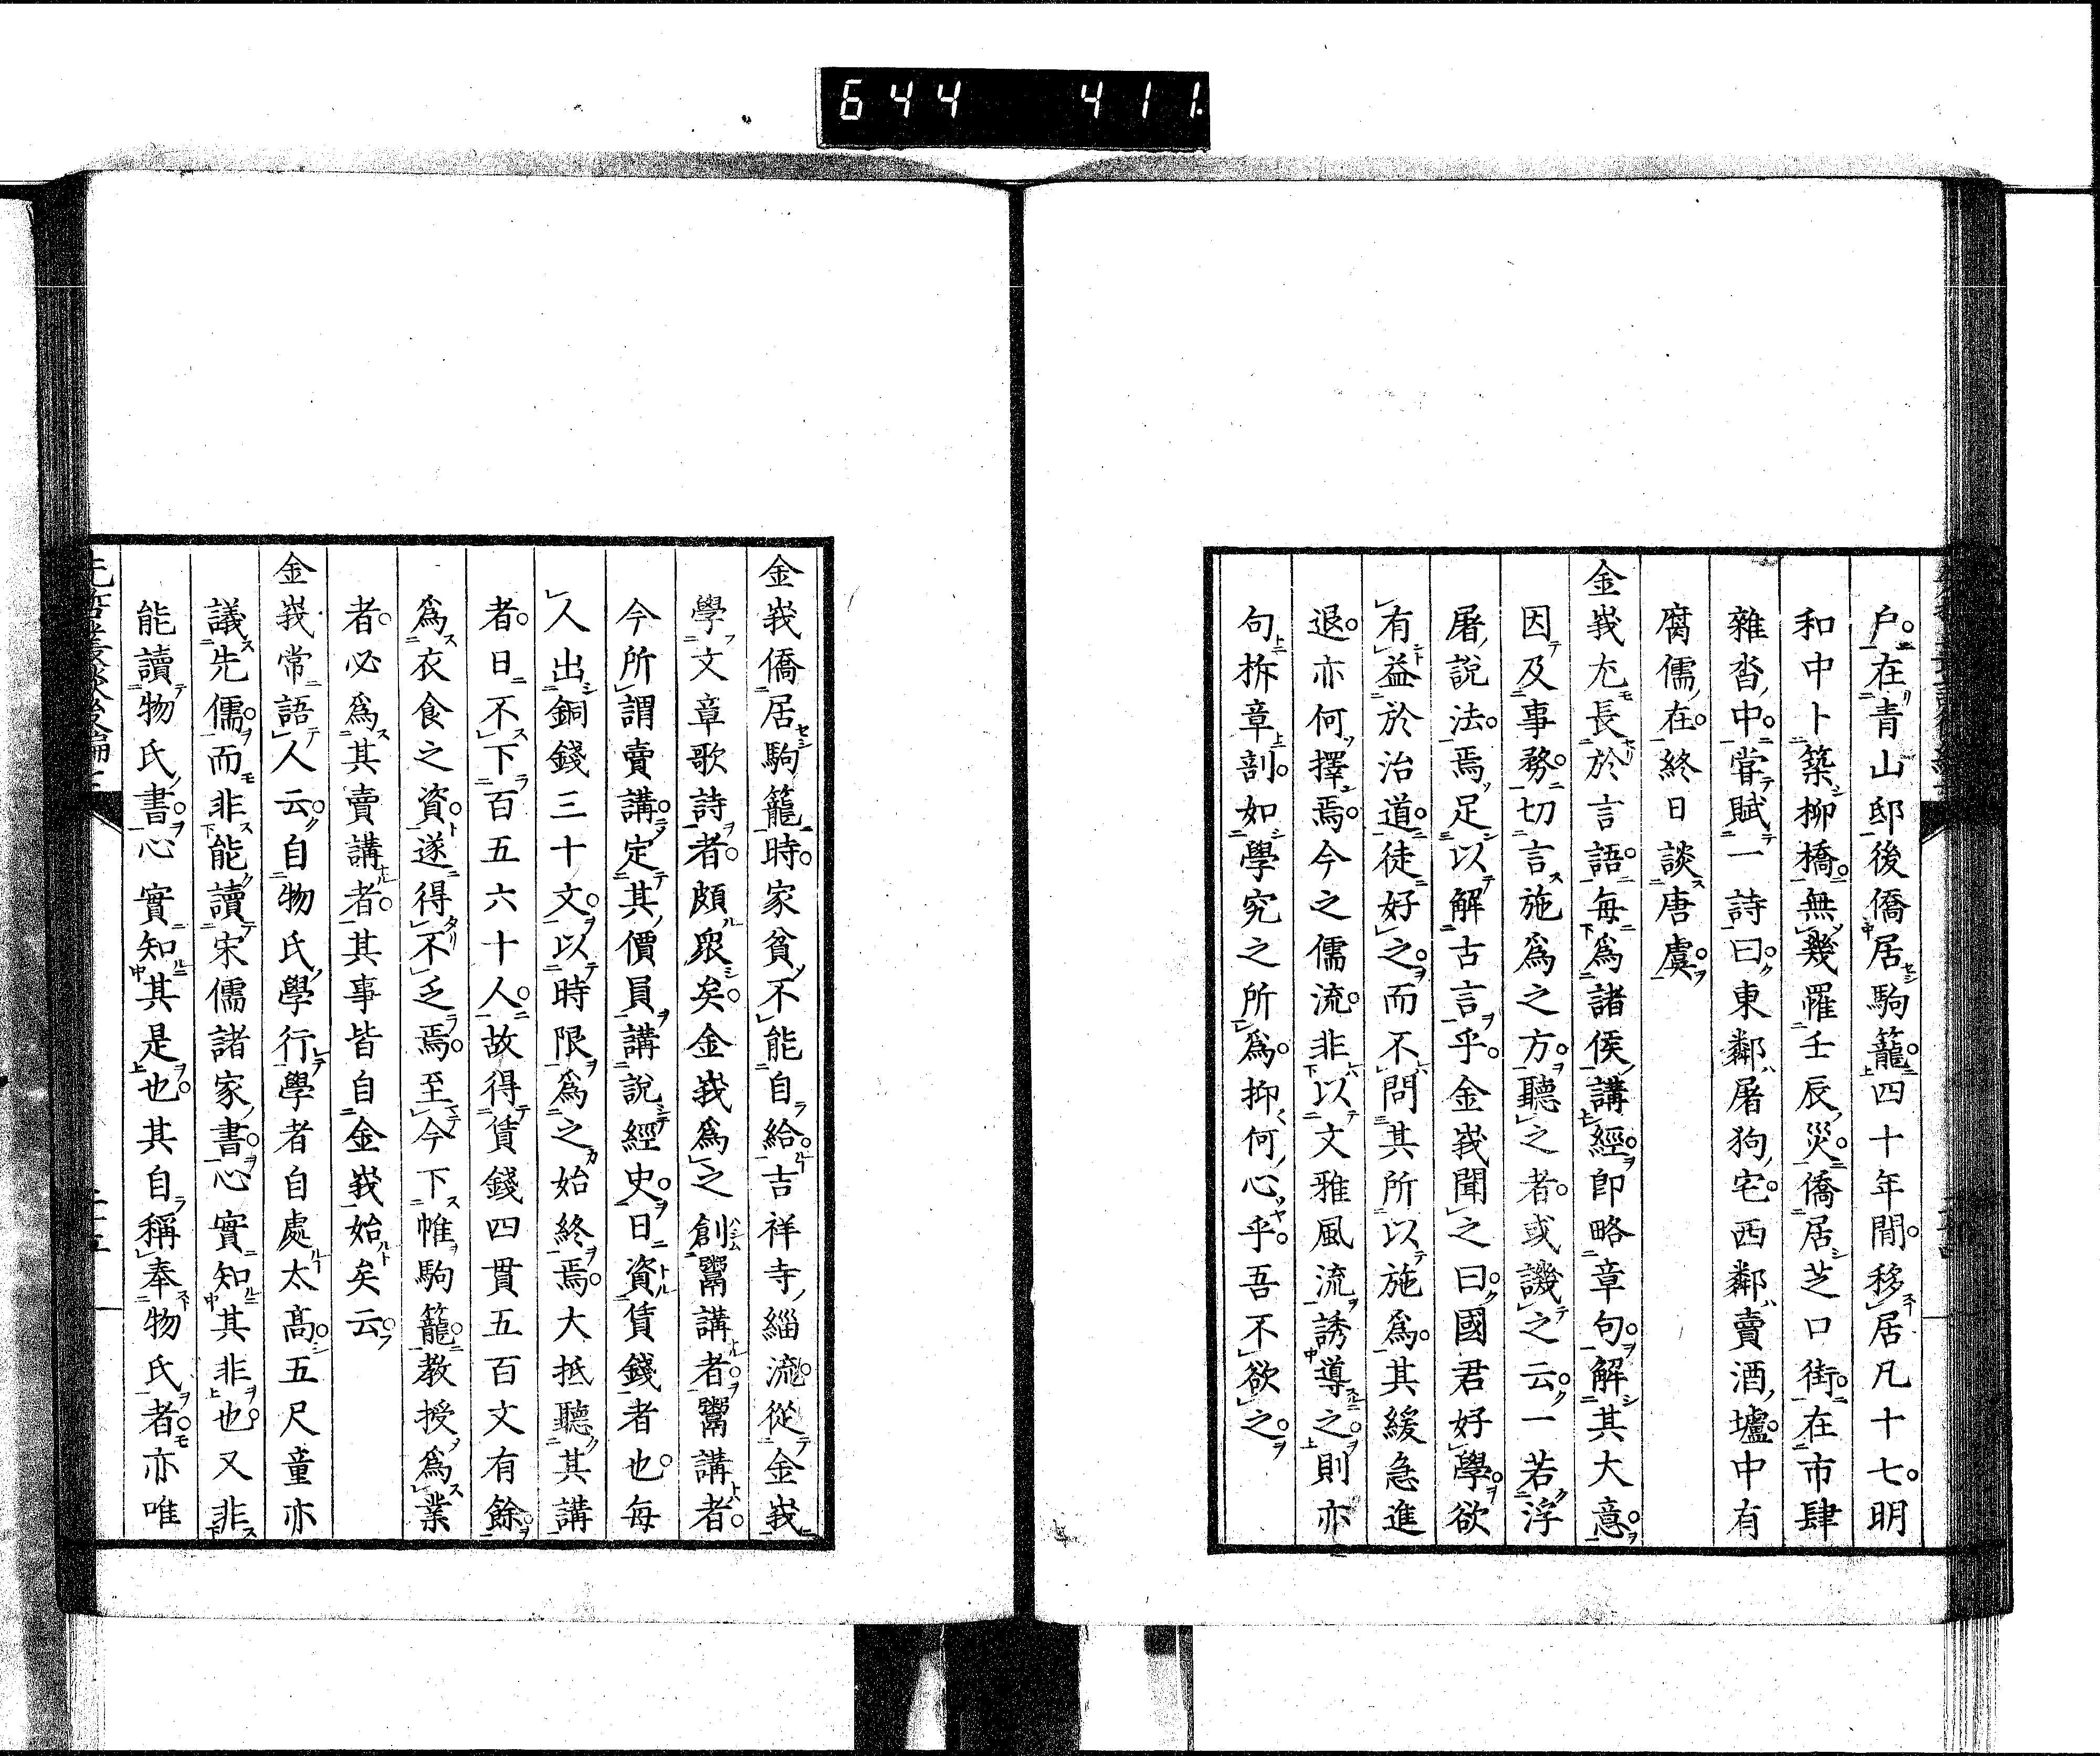 644 411
戶在青山邸後僑居駒籠四十年間移居凡十七明
和中卜築柳橋無幾罹壬辰災僑居芝口街在市肆
雜沓中嘗賦一詩曰東鄰屠狗宅西鄰賣酒壚中有
腐儒在終日談唐虞
金峩尤長於言語每爲諸侯講經卽略章句解其大意
因及事務切言施爲之方聽之者或譏之云一若浮
屠說法焉足以解古言乎金峩聞之曰國君好學欲
有益於治道徒好之而不問其所以施爲其緩急進
退亦何擇焉今之儒流非以文雅風流誘導之則亦
句拆章剖如學究之所爲抑何心乎吾不欲之
金峩僑居駒籠時家貧不能自給吉祥寺緇流從金峩
學文章歌詩者頗眾矣金峩爲之創鬻講者鬻講者
今所謂賣講定其價員講說經史日資賃錢者也每
人出銅錢三十文以時限爲之始終焉大抵聽其講
者日不下百五六十人故得賃錢四貫五百文有餘
爲衣食之資遂得不乏焉至今下帷駒籠教授爲業
者必爲其賣講者其事皆自金峩始矣云
金峩常語人云自物氏學行學者自處太高五尺童亦
議先儒而非能讀宋儒諸家書心實知其非也又非
能讀物氏書心實知其是也其自稱奉物氏者亦唯